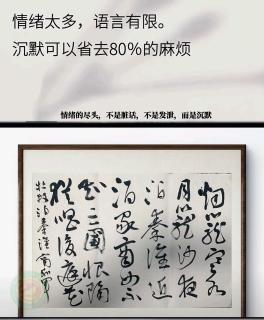 情绪太多，语言有限。
沉默可以省去80%的麻烦
情绪的尽头，不是脏话，不是发泄，而是沉默
烟籠寒水
月籠沙夜
泊秦淮近
酒家商女不
知亡國恨隔
猶唱後庭花
杜牧泊秦淮